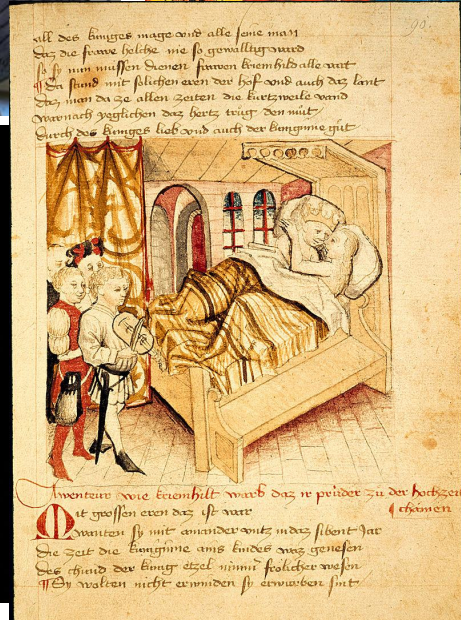 all des küniges mage vnd alle seine man
daz die frawe helche nie so gewalltig ward
so sy nun müssen dienen frawen kriemhild alle vart
Da stund mit solichen eren der hof vnd auch daz lant
daz man da ze allen zeiten die kurtzweile vand
warnach yeglichen daz hertz trüg den müt
durch des küniges lieb vnd auch der küniginne güt
90.
Awenteur wie kriemhilt warb daz ir prüder zu der hochzeit
chamen
Mit grossen eren daz ist war
wanten sy mit ainander vntz in daz sibent Jar
die zeit die küniginne ains kindes waz genesen
des chund der künig etzel nimmer frölicher wesen
Sy wolten nicht erwinden sy erwürben sint